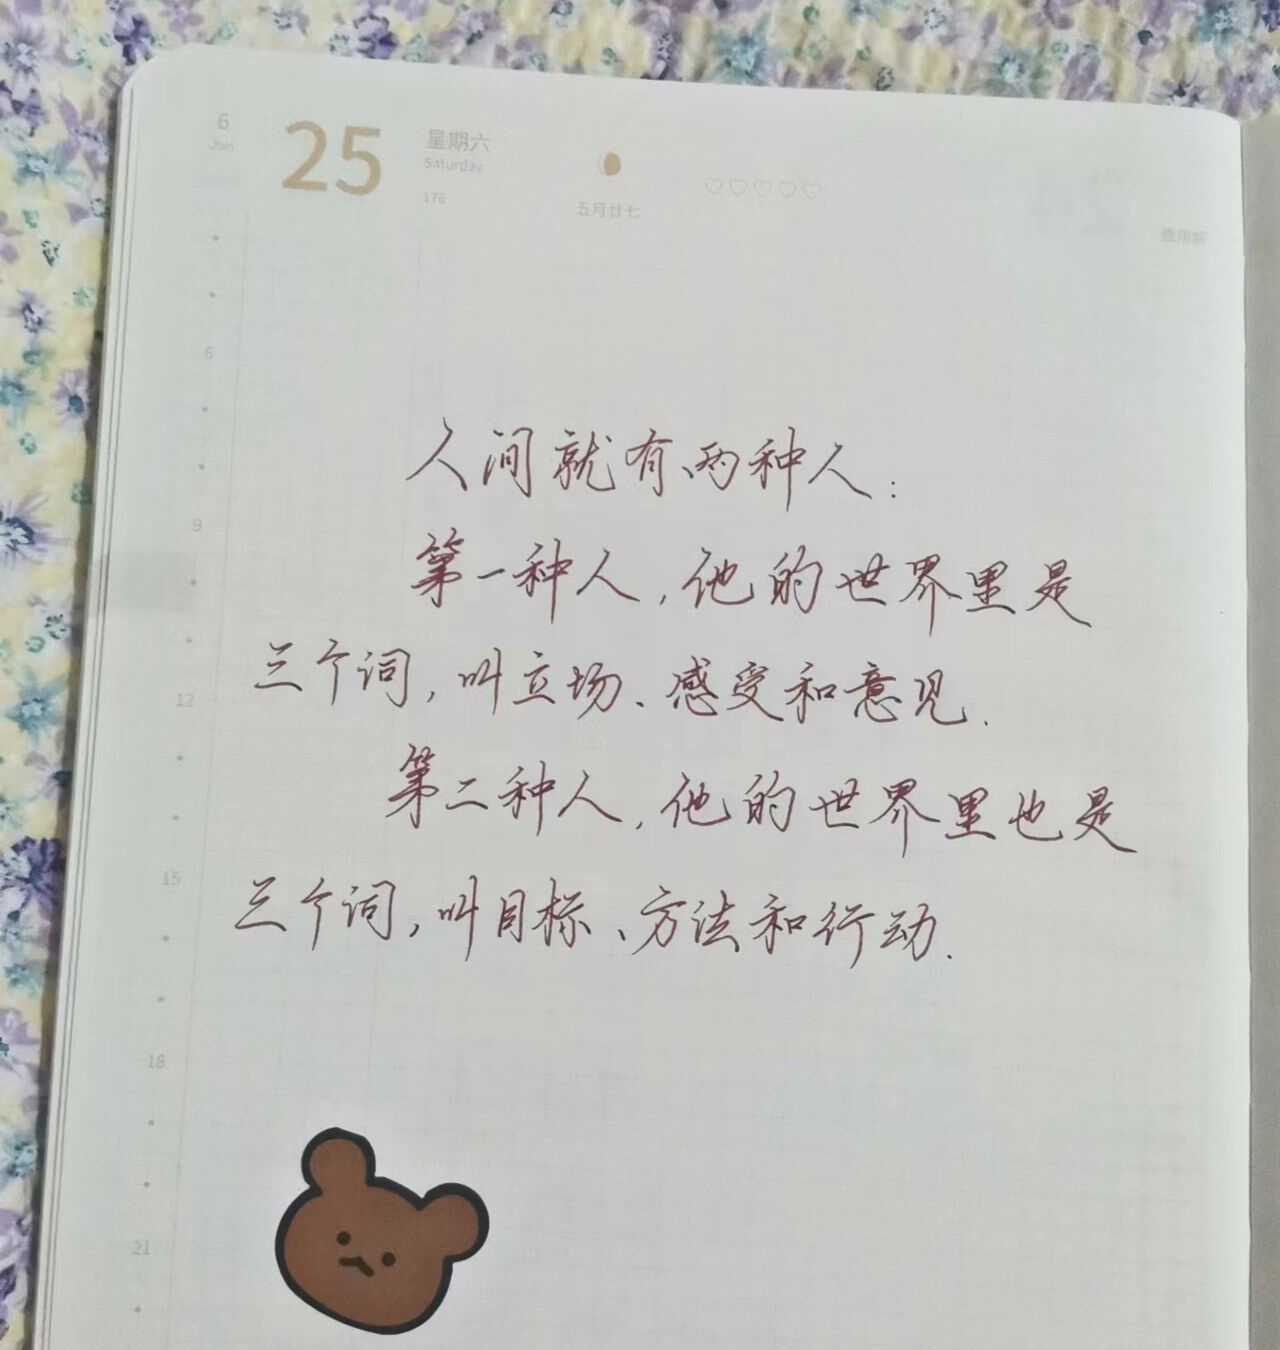 6
June
25
星期六
Saturday
176
五月廿七
6
9
12
15
18
21
人间就有两种人:
第一种人,他的世界里是
三个词,叫立场、感受和意见.
第二种人,他的世界里也是
三个词,叫目标、方法和行动.